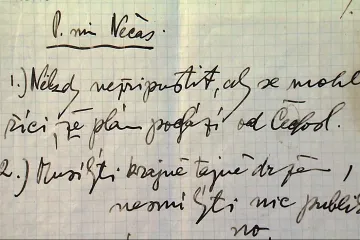 P. min Nečas.
1.) Nikdy nepřipustit, aby se mohlo
říci, že plán pochází od Čechosl.
2.) Musí býti krajně tajně držen,
nesmí býti nic publi
no,